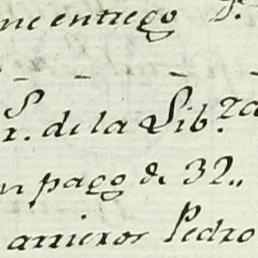 me entrego D.
r. de la Lib.za
en pago de 32,,
arrieros Pedro